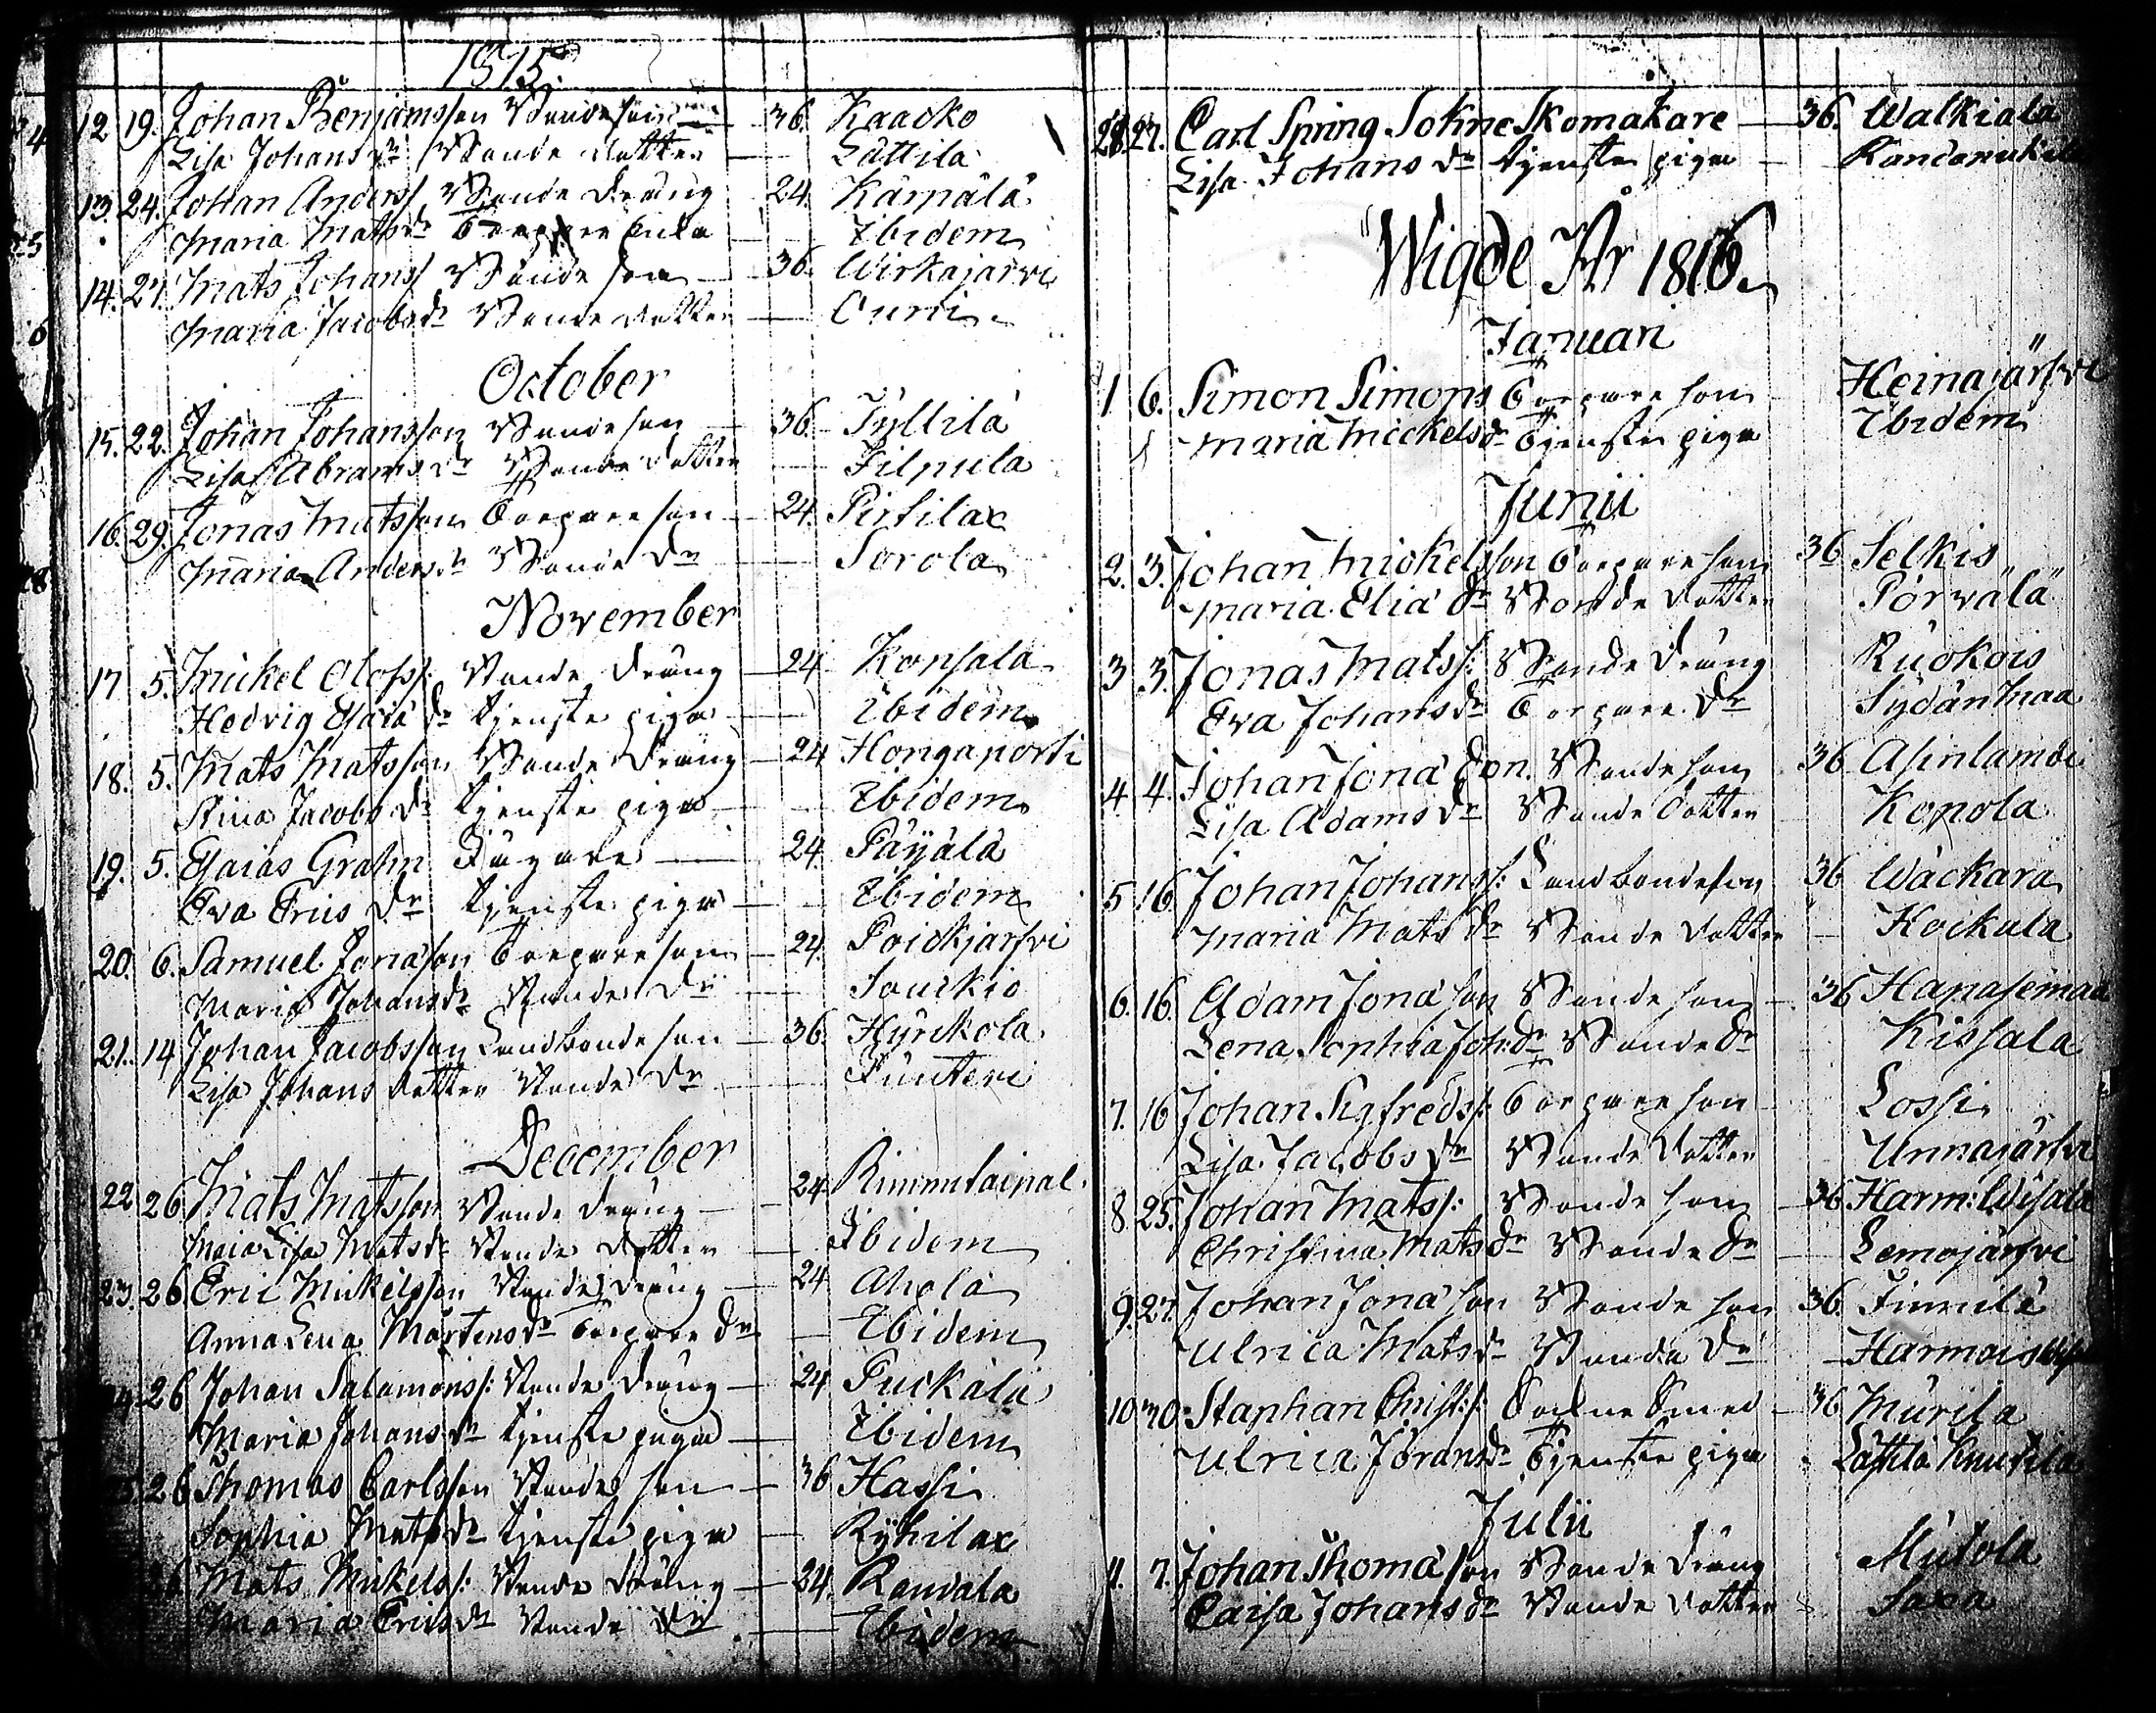 1815.
12 19. Johan Benjamsson Bondeson 36. Kaacko
Lisa Johans dr Bonde dotter Lättilä
13. 24. Johan Anders/ Bonde dräng 24. Kärnälä
Maria Matsdr Torpare Enka Ibidem
14. 27. Mats Johans/ Bonde son 36. Wirkajärvi
Maria Jacobsdr Bonde dotter
October
15. 22. Johan Johansson Bondeson 36. Tyllilä
Lisa Abramsdr Bonde dotter Filpula
16. 29. Jonas Matsson Torpareson 24. Pirtilax
Maria Andersdr Bonde dr Sorola
November
17 5. Mickel Olofs/: Bonde dräng 24 Konsala
Hedvig Esaiæ dr tjenste piga Ibidem
18. 5. Mats Matsson Bonde dräng 24 Hongaporti
Stina Jacobs dr tjenste piga Ibidem
19. 5. Esaias Grahn 24. Päyälä
Eva Erics dr tjenste piga Ibidem
20. 6. Samuel Jonæson Torpareson 24. Poickjärfvi
Maria Johansdr Bonde dr Souckio
21. 14 Johan Jacobsson Landbondeson 36. Hyrckola
Lisa Johans dotter Bonde dr Punteri
December
22 26 Mats Matsson Bonde dräng 24.
Maia Lisa Matsdr Bonde dotter Ibidem
23. 26. Eric Mickelsson Bonde dräng 24 Ahola
Anna Lena Mårtensdr Torpare dr Ibidem
24 26 Johan Salamons/: Bonde dräng 24 Puckala
Maria Johans dr tjenste piga Ibidem
25. 26 Thomas Carlsson Bonde son 36 Hassi
Sophia Matsdr tjenste piga Rykilax
26. Mats Mickels/: Bonde dräng 24. Randala
Maria Ericsdr Bonde dr Ibidem
28. 27. Carl Spring Sokne Skomakare 36. Walkiala
Lisa Johans dr tjenste piga
Wigde År 1816.
Januari
1 6. Simon Simons Torpare son Heinajärfvi
Maria Mickelsdr Tjenste piga Ibidem
Junii
2. 3. Johan Mickelsson Torpareson 36 Selkis
Maria Eliæ dr Bonde dotter Porvälä
3 3. Jonas Mats/: Bonde dräng Ruokois
Eva Johansdr Torpare dr Sydänmaa
4. 4. Johan Jonæ Son. Bondeson 36 Asinlamdi
Lisa Adams dr Bonde dotter Konola
5 16. Johan Johans/: Landbondeson 36 Wäckära
Maria Mats dr Bonde dotter Kockala
6. 16. Adam Jonæ son Bonde son 36 Hapasemaa
Lena Sophia Joh:dr Bonde dr Kissala
7. 16 Johan Sigfreds/: Torpare son Lossi
Lisa Jacobs dr Bonde dotter Unnajärfvi
8. 25. Johan Mats/: Bonde son 36 Harm: Wisala
Christina Mats dr Bonde dr Lemojärfvi
9. 27. Johan Jonæ son Bonde son 36.
Ulrica Matsdr Bonde dr Harmois
10. 30. Staphan Christ:/: Sockne Smed 36 Murila
Ulrica Jöransdr Tjenste piga Lättilä Knutila
Julii
11. 7. Johan Thomæ son Bonde dräng Mutola
Caisa Johansdr Bonde dotter Saxa